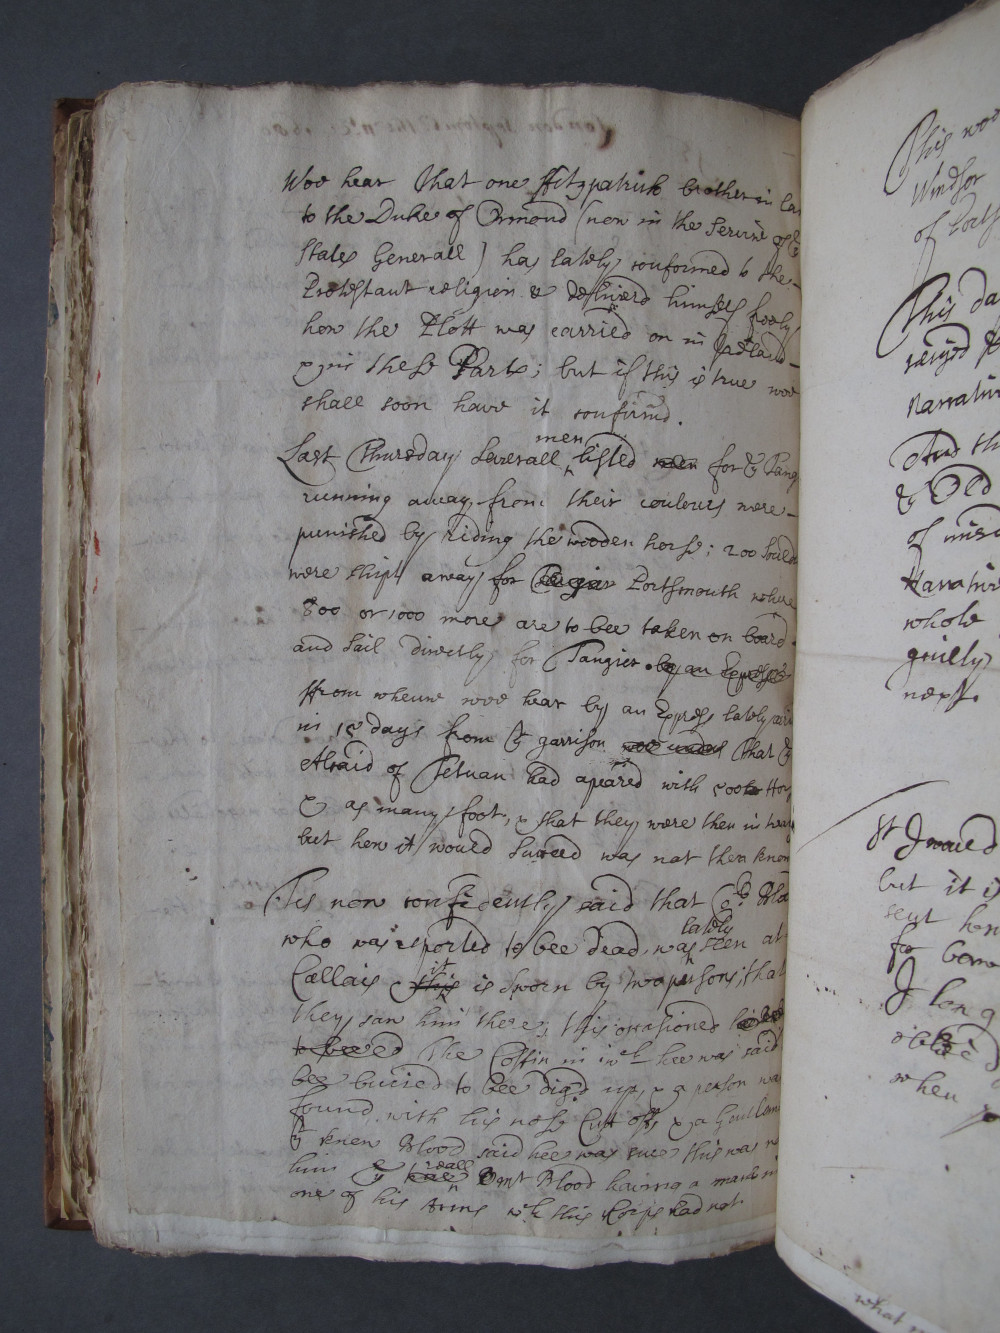 Wee hear that one Fitzpatrick brother in law
to the Duke of Ormond (now in the Service of ye
States Generall) has lately conformed to the
Protestant religion & desliverd himself freely
how the Plott was carried on in Ireland
& in these Parts; but if this is true wee
shall soon have it confirmd.
Last Thursday severall men listed men for ye Tang
running away from their coulours were
punished by riding the wooden horse; 200 Sould
were shipt away for Tangier Portsmouth where
800 or 1000 more are to bee taken on board
and sail directly for Tangier. by an Express
From whence wee hear by an Express lately arri
in 18 days from ye garrison that ye
Alcaid of Tetuan had apeared with 500 Hors
& as many foot, & that they were then in
but how it would succeed was not then known
Tis now confidently said that Coll Blood
who was reported to bee dead, was lately seen at
Callais this it is sworn by two persons, that
they saw him there, this occasioned
to bee The Coffin in wch hee was said
bee buried to bee dig'd up, & a person was
found with his nose Cutt off, & a Gentleman
yt knew Blood said hee was sure this was not
him ye reall Blood having a mark in
one of his Arms wch this Corps had not.
This
Windsor
of Ports
This day
Narrative
And th
ye Old
of
Narrative
whole
guilty
next.
Sr I
but it is
sent
for
I long
when
what